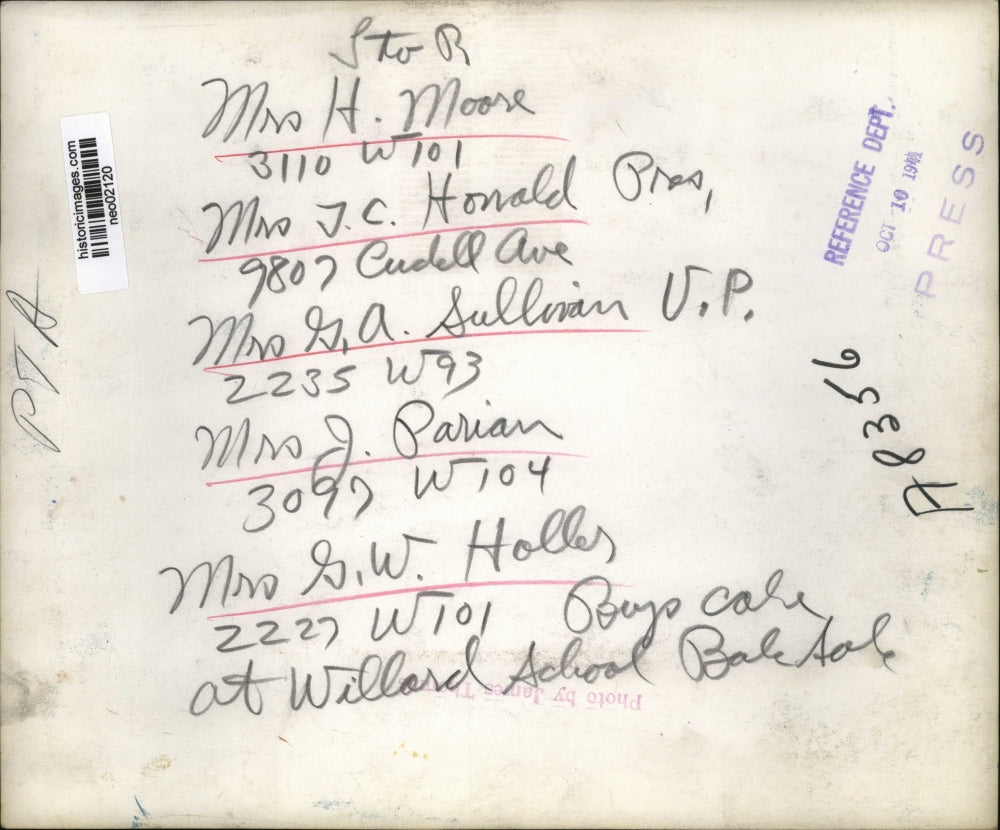 S to R
Mrs H. Moore
3110 W 101
Mrs T.C. Horrald Pres,
9807 Cudell Ave
Mrs G.A. Sullivan V.P.
2235 W 93
Mrs J. Parian
3097 W 104
Mrs G.W. Holler
2227 W 101 Buys cake
at Willard School Bake Sale
Photo by James
PTA
historicimages.com
neo02120
REFERENCE DEPT.
OCT 10 19
PRESS
A8356